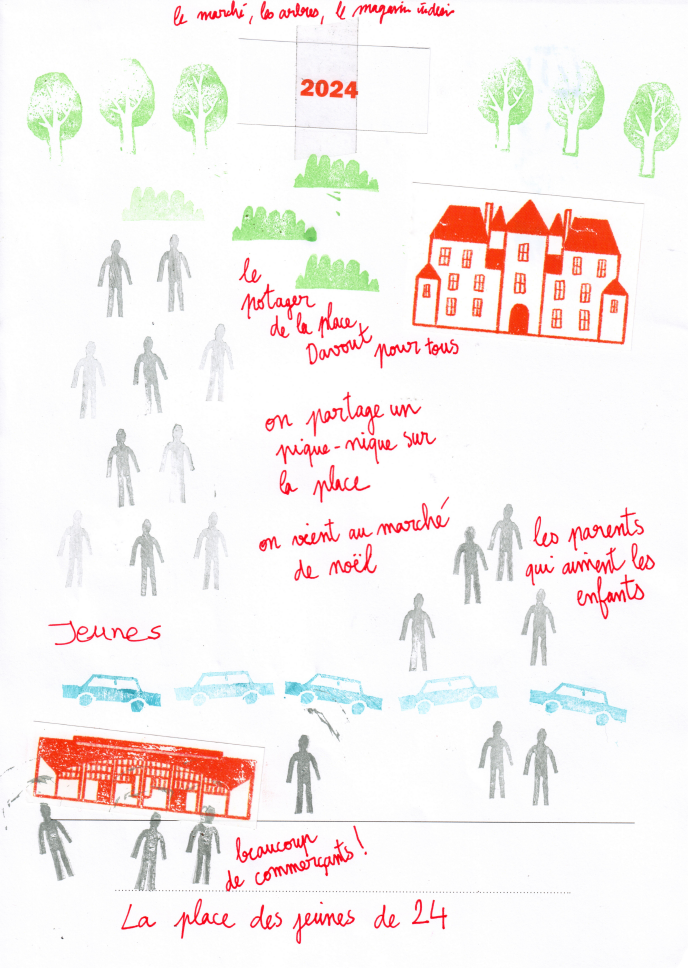 le marché, les arbres, le magasin indien
2024
le
potager
de la place
Davout pour tous
on partage un
pique-nique sur
la place
on vient au marché
de noël
les parents
qui aiment les
enfants
Jeunes
beaucoup
de commerçants !
La place des jeunes de 24